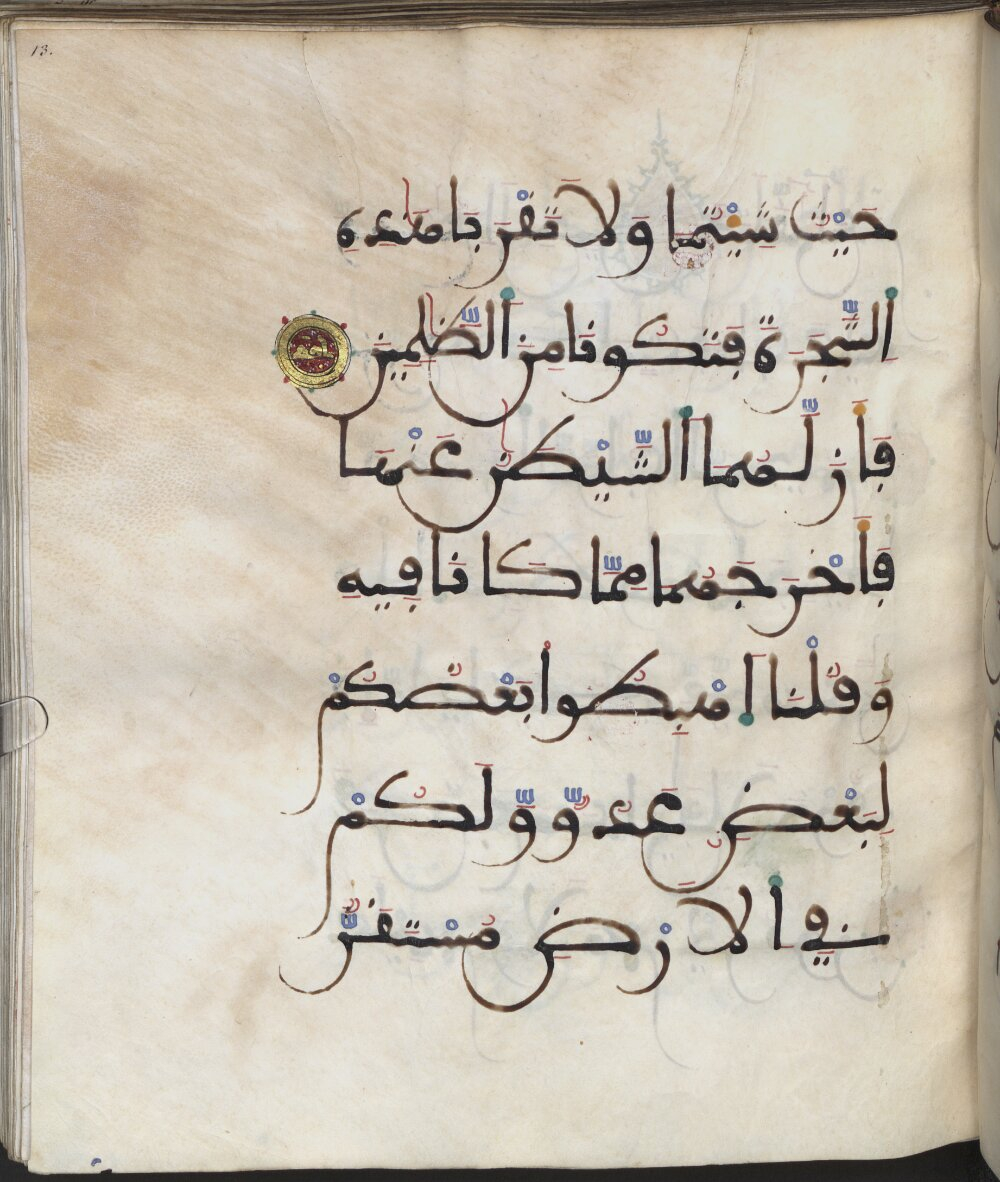 13.
حَيْثُ شِئْتُمَا وَلَا تَقْرَبَا هَٰذِهِ
اِ۬لشَّجَرَةَ فَتَكُونَا مِنَ اَ۬لظَّٰلِمِينَ
فَأَزَلَّهُمَا اَ۬لشَّيْطَٰنُ عَنْهَا
فَأَخْرَجَهُمَا مِمَّا كَانَا فِيهِ
وَقُلْنَا اَ۪هْبِطُوا بَعْضُكُمْ
لِبَعْضٍ عَدُوٌّ وَّلَكُمْ
فِي اِ۬لَارْضِ مُسْتَقَرٌّ